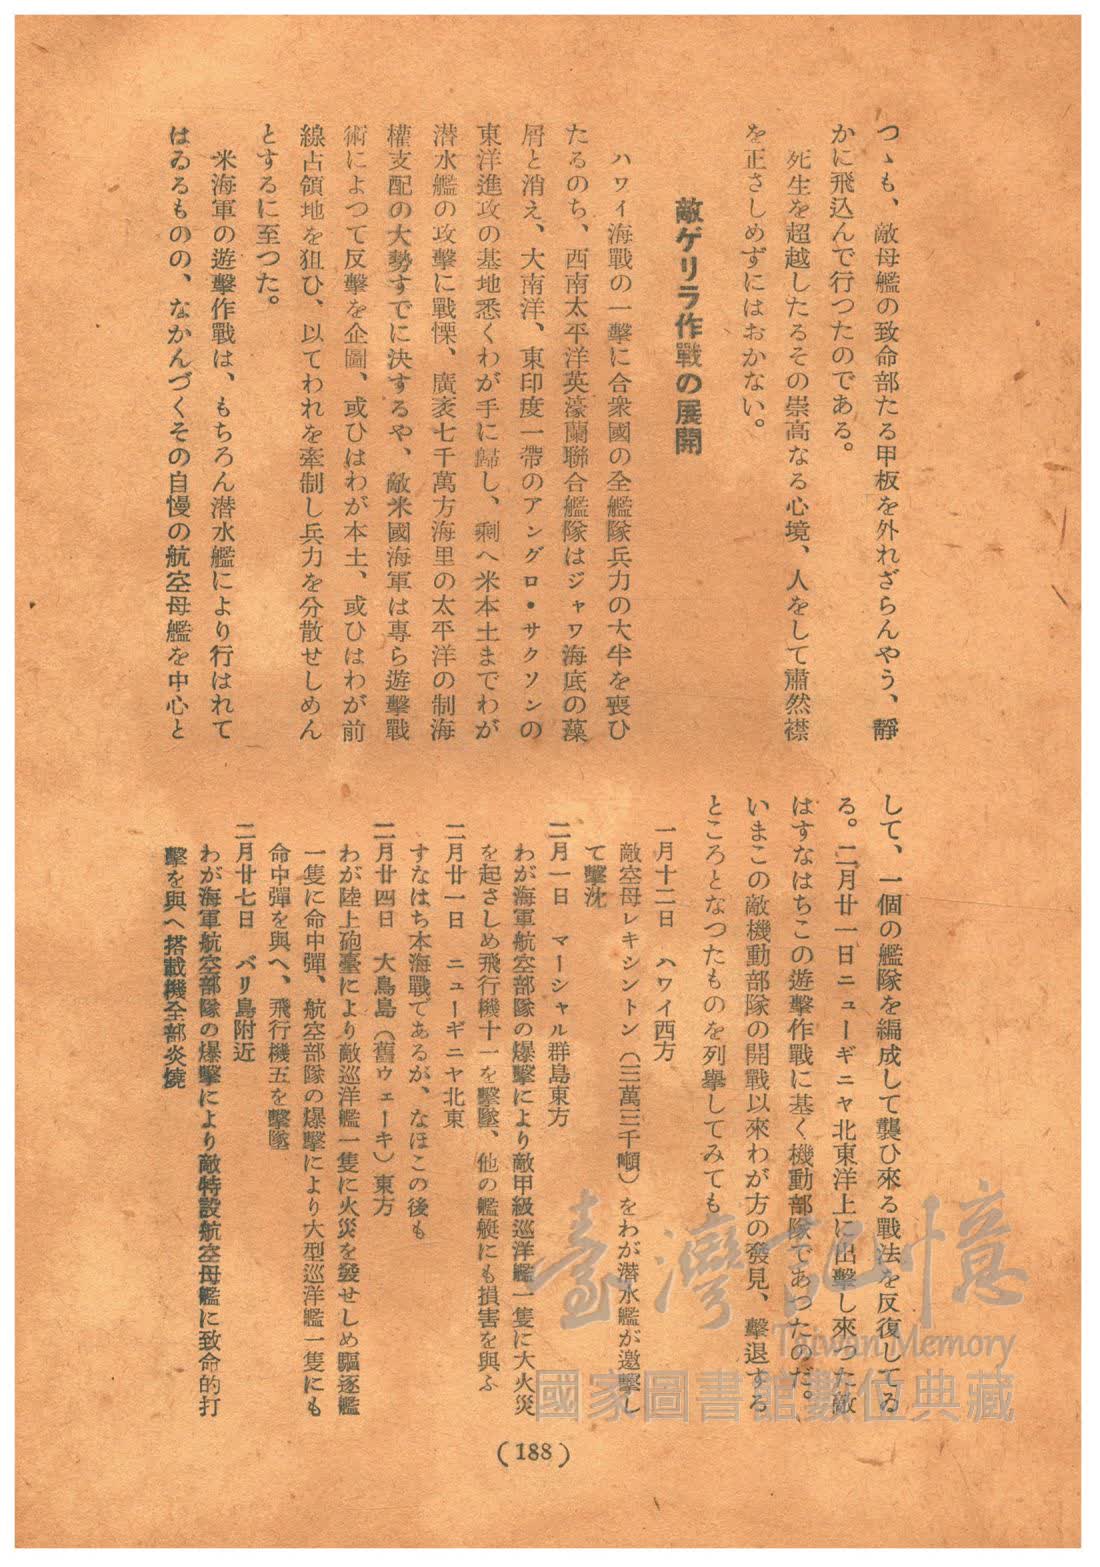 つゝも、敵母艦の致命部たる甲板を外れざらんやう、靜
かに飛込んで行つたのである。
死生を超越したるその崇高なる心境、人をして肅然襟
を正さしめずにはおかない。
敵ゲリラ作戰の展開
ハワイ海戰の一擊に合衆國の全艦隊兵力の大半を喪ひ
たるのち、西南太平洋英濠蘭聯合艦隊はジャワ海底の藻
屑と消え、大南洋、東印度一帶のアングロ・サクソンの
東洋進攻の基地悉くわが手に歸し、剩へ米本土までわが
潜水艦の攻擊に戰慄、廣袤七千萬方海里の太平洋の制海
權支配の大勢すでに決するや、敵米國海軍は專ら遊擊戰
術によつて反擊を企圖、或ひはわが本土、或ひはわが前
線占領地を狙ひ、以てわれを牽制し兵力を分散せしめん
とするに至つた。
米海軍の遊擊作戰は、もちろん潜水艦により行はれて
はゐるものの、なかんづくその自慢の航空母艦を中心と
して、一個の艦隊を編成して襲ひ來る戰法を反復してゐ
る。二月廿一日ニューギニヤ北東洋上に出擊し來つた敵
はすなはちこの遊擊作戰に基く機動部隊であつたのだ。
いまこの敵機動部隊の開戰以來わが方の發見、擊退する
ところとなつたものを列擧してみても
一月十二日　ハワイ西方
敵空母レキシントン（三萬三千噸）をわが潜水艦が邀擊し
て擊沈
二月一日　マーシャル群島東方
わが海軍航空部隊の爆擊により敵甲級巡洋艦一隻に大火災
を起さしめ飛行機十一を擊墜、他の艦艇にも損害を與ふ
二月廿一日　ニューギニヤ北東
すなはち本海戰であるが、なほこの後も
二月廿四日　大鳥島（舊ウェーキ）東方
わが陸上砲臺により敵巡洋艦一隻に火災を發せしめ驅逐艦
一隻に命中彈、航空部隊の爆擊により大型巡洋艦一隻にも
命中彈を與へ、飛行機五を擊墜
二月廿七日　バリ島附近
わが海軍航空部隊の爆擊により敵特設航空母艦に致命的打
擊を與へ搭載機全部炎燒
(188)
臺灣記憶
Taiwan Memory
國家圖書館數位典藏